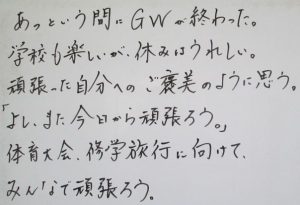 あっという間にGWが終わった。
学校も楽しいが、休みはうれしい。
頑張った自分へのご褒美のように思う。
「よし、また今日から頑張ろう。」
体育大会、修学旅行に向けて、
みんなで頑張ろう。